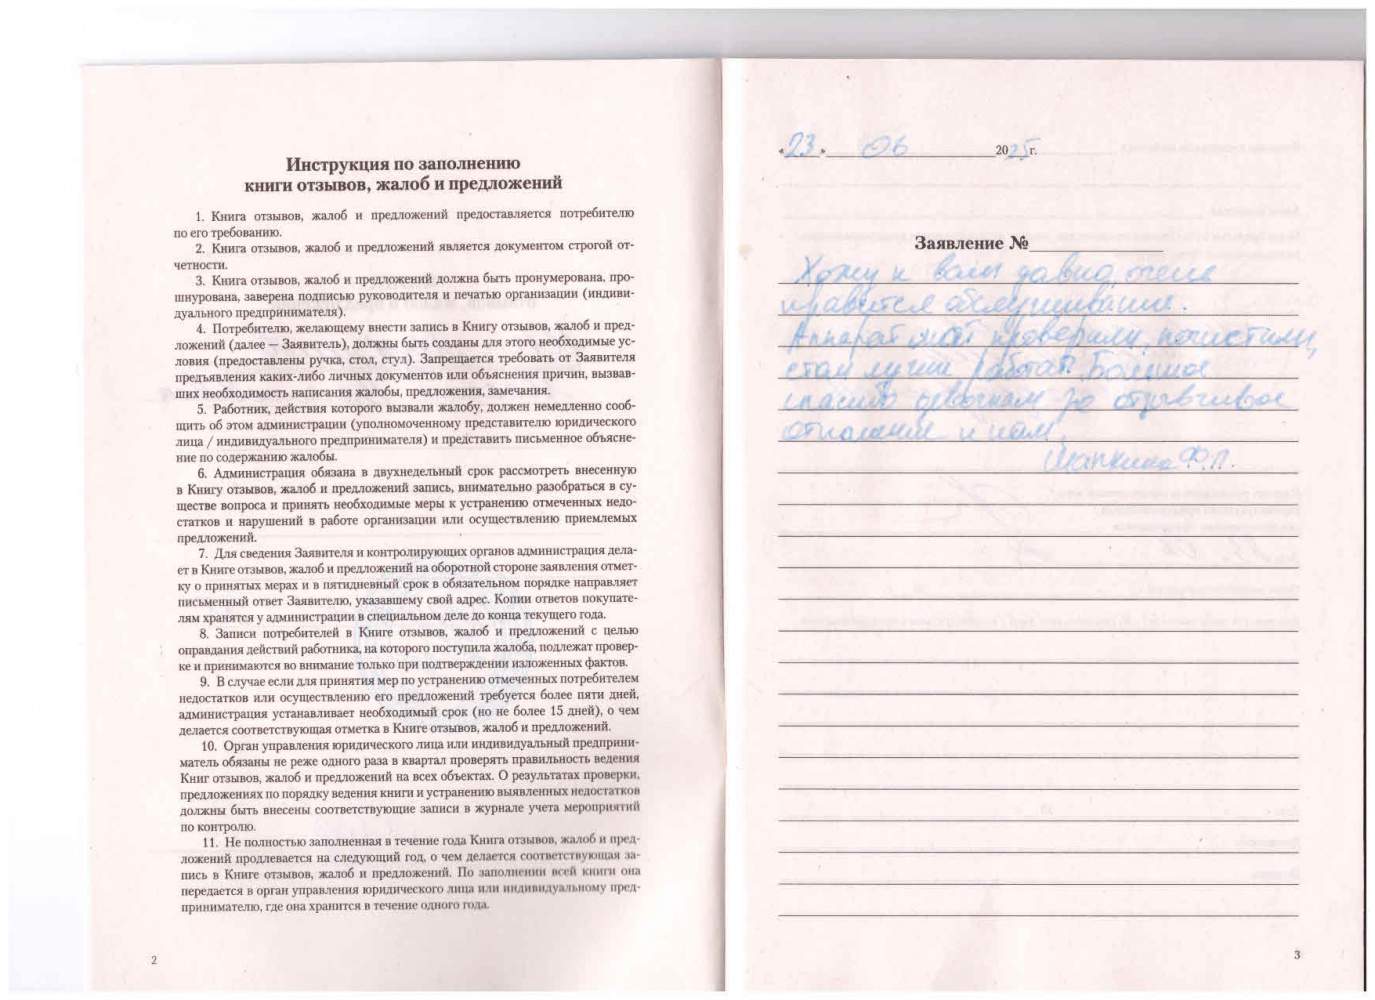 Инструкция по заполнению
книги отзывов, жалоб и предложений
1. Книга отзывов, жалоб и предложений предоставляется потребителю
по его требованию.
2. Книга отзывов, жалоб и предложений является документом строгой от-
четности.
3. Книга отзывов, жалоб и предложений должна быть пронумерована, про-
шнурована, заверена подписью руководителя и печатью организации (индиви-
дуального предпринимателя).
4. Потребителю, желающему внести запись в Книгу отзывов, жалоб и пред-
ложений (далее — Заявитель), должны быть созданы для этого необходимые ус-
ловия (предоставлены ручка, стол, стул). Запрещается требовать от Заявителя
предъявления каких-либо личных документов или объяснения причин, вызвав-
ших необходимость написания жалобы, предложения, замечания.
5. Работник, действия которого вызвали жалобу, должен немедленно сооб-
щить об этом администрации (уполномоченному представителю юридического
лица / индивидуального предпринимателя) и представить письменное объясне-
ние по содержанию жалобы.
6. Администрация обязана в двухнедельный срок рассмотреть внесенную
в Книгу отзывов, жалоб и предложений запись, внимательно разобраться в су-
ществе вопроса и принять необходимые меры к устранению отмеченных недо-
статков и нарушений в работе организации или осуществлению приемлемых
предложений.
7. Для сведения Заявителя и контролирующих органов администрация дела-
ет в Книге отзывов, жалоб и предложений на оборотной стороне заявления отмет-
ку о принятых мерах и в пятидневный срок в обязательном порядке направляет
письменный ответ Заявителю, указавшему свой адрес. Копии ответов покупате-
лям хранятся у администрации в специальном деле до конца текущего года.
8. Записи потребителей в Книге отзывов, жалоб и предложений с целью
оправдания действий работника, на которого поступила жалоба, подлежат провер-
ке и принимаются во внимание только при подтверждении изложенных фактов.
9. В случае если для принятия мер по устранению отмеченных потребителем
недостатков или осуществлению его предложений требуется более пяти дней,
администрация устанавливает необходимый срок (но не более 15 дней), о чем
делается соответствующая отметка в Книге отзывов, жалоб и предложений.
10. Орган управления юридического лица или индивидуальный предприни-
матель обязаны не реже одного раза в квартал проверять правильность ведения
Книг отзывов, жалоб и предложений на всех объектах. О результатах проверки,
предложениях по порядку ведения книги и устранению выявленных недостатков
должны быть внесены соответствующие записи в журнале учета мероприятий
по контролю.
11. Не полностью заполненная в течение года Книга отзывов, жалоб и пред-
ложений продлевается на следующий год, о чем делается соответствующая за-
пись в Книге отзывов, жалоб и предложений. По заполнении всей книги она
передается в орган управления юридического лица или индивидуальному пред-
принимателю, где она хранится в течение одного года.
2
«23» 06 2025 г.
Заявление №
Хожу к вам давно, очень
нравится обслуживание.
Аппарат мой проверили, почистили,
стал лучше работать. Большое
спасибо девочкам за отзывчивое
отношение к нам.
Ф.П.
3